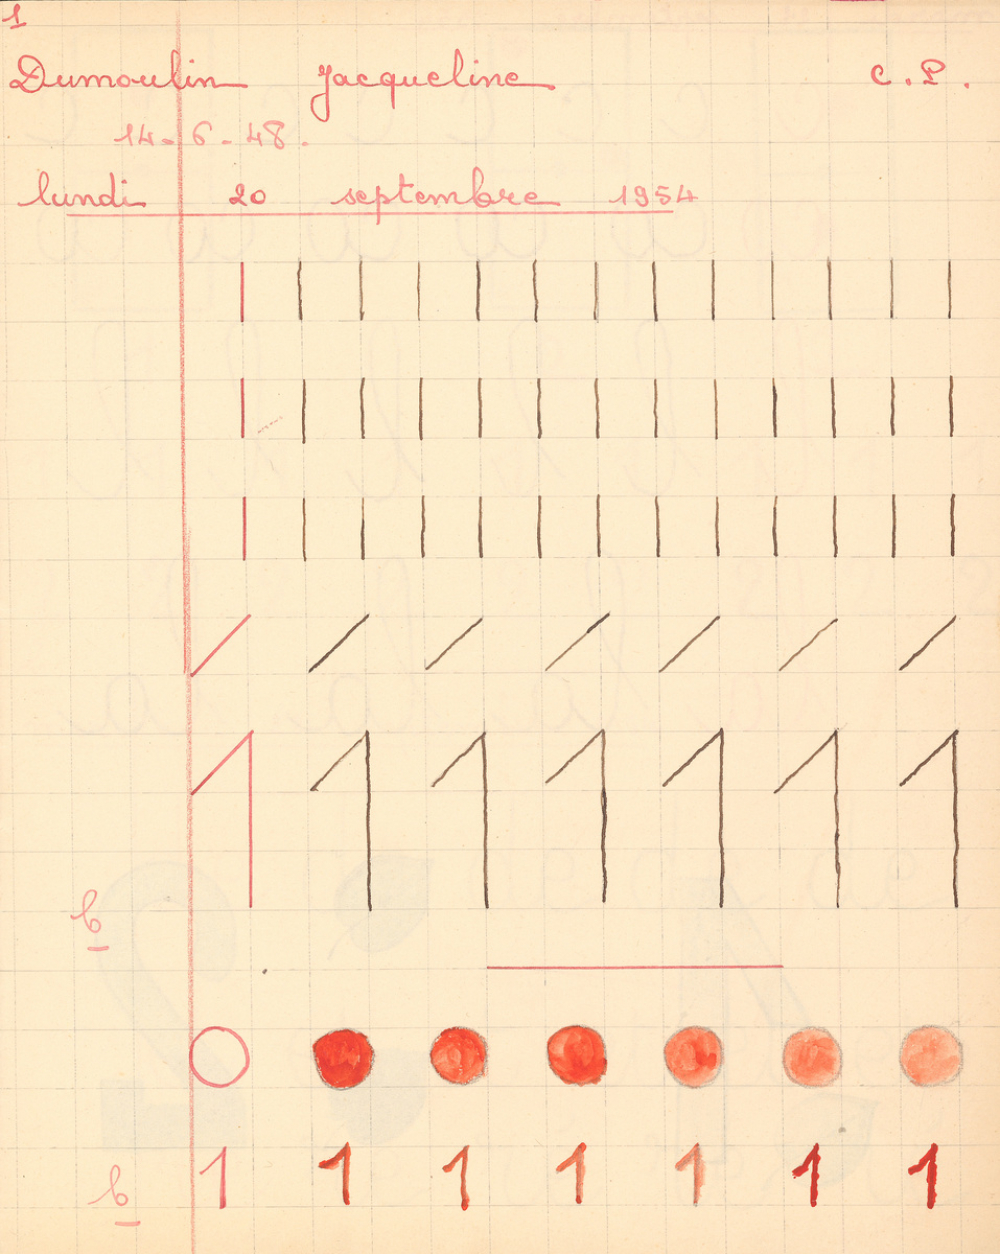 1
Dumoulin Jacqueline C.P.
14-6-48.
lundi 20 septembre 1954
1 1 1 1 1 1 1
b
1 1 1 1 1 1 1
b